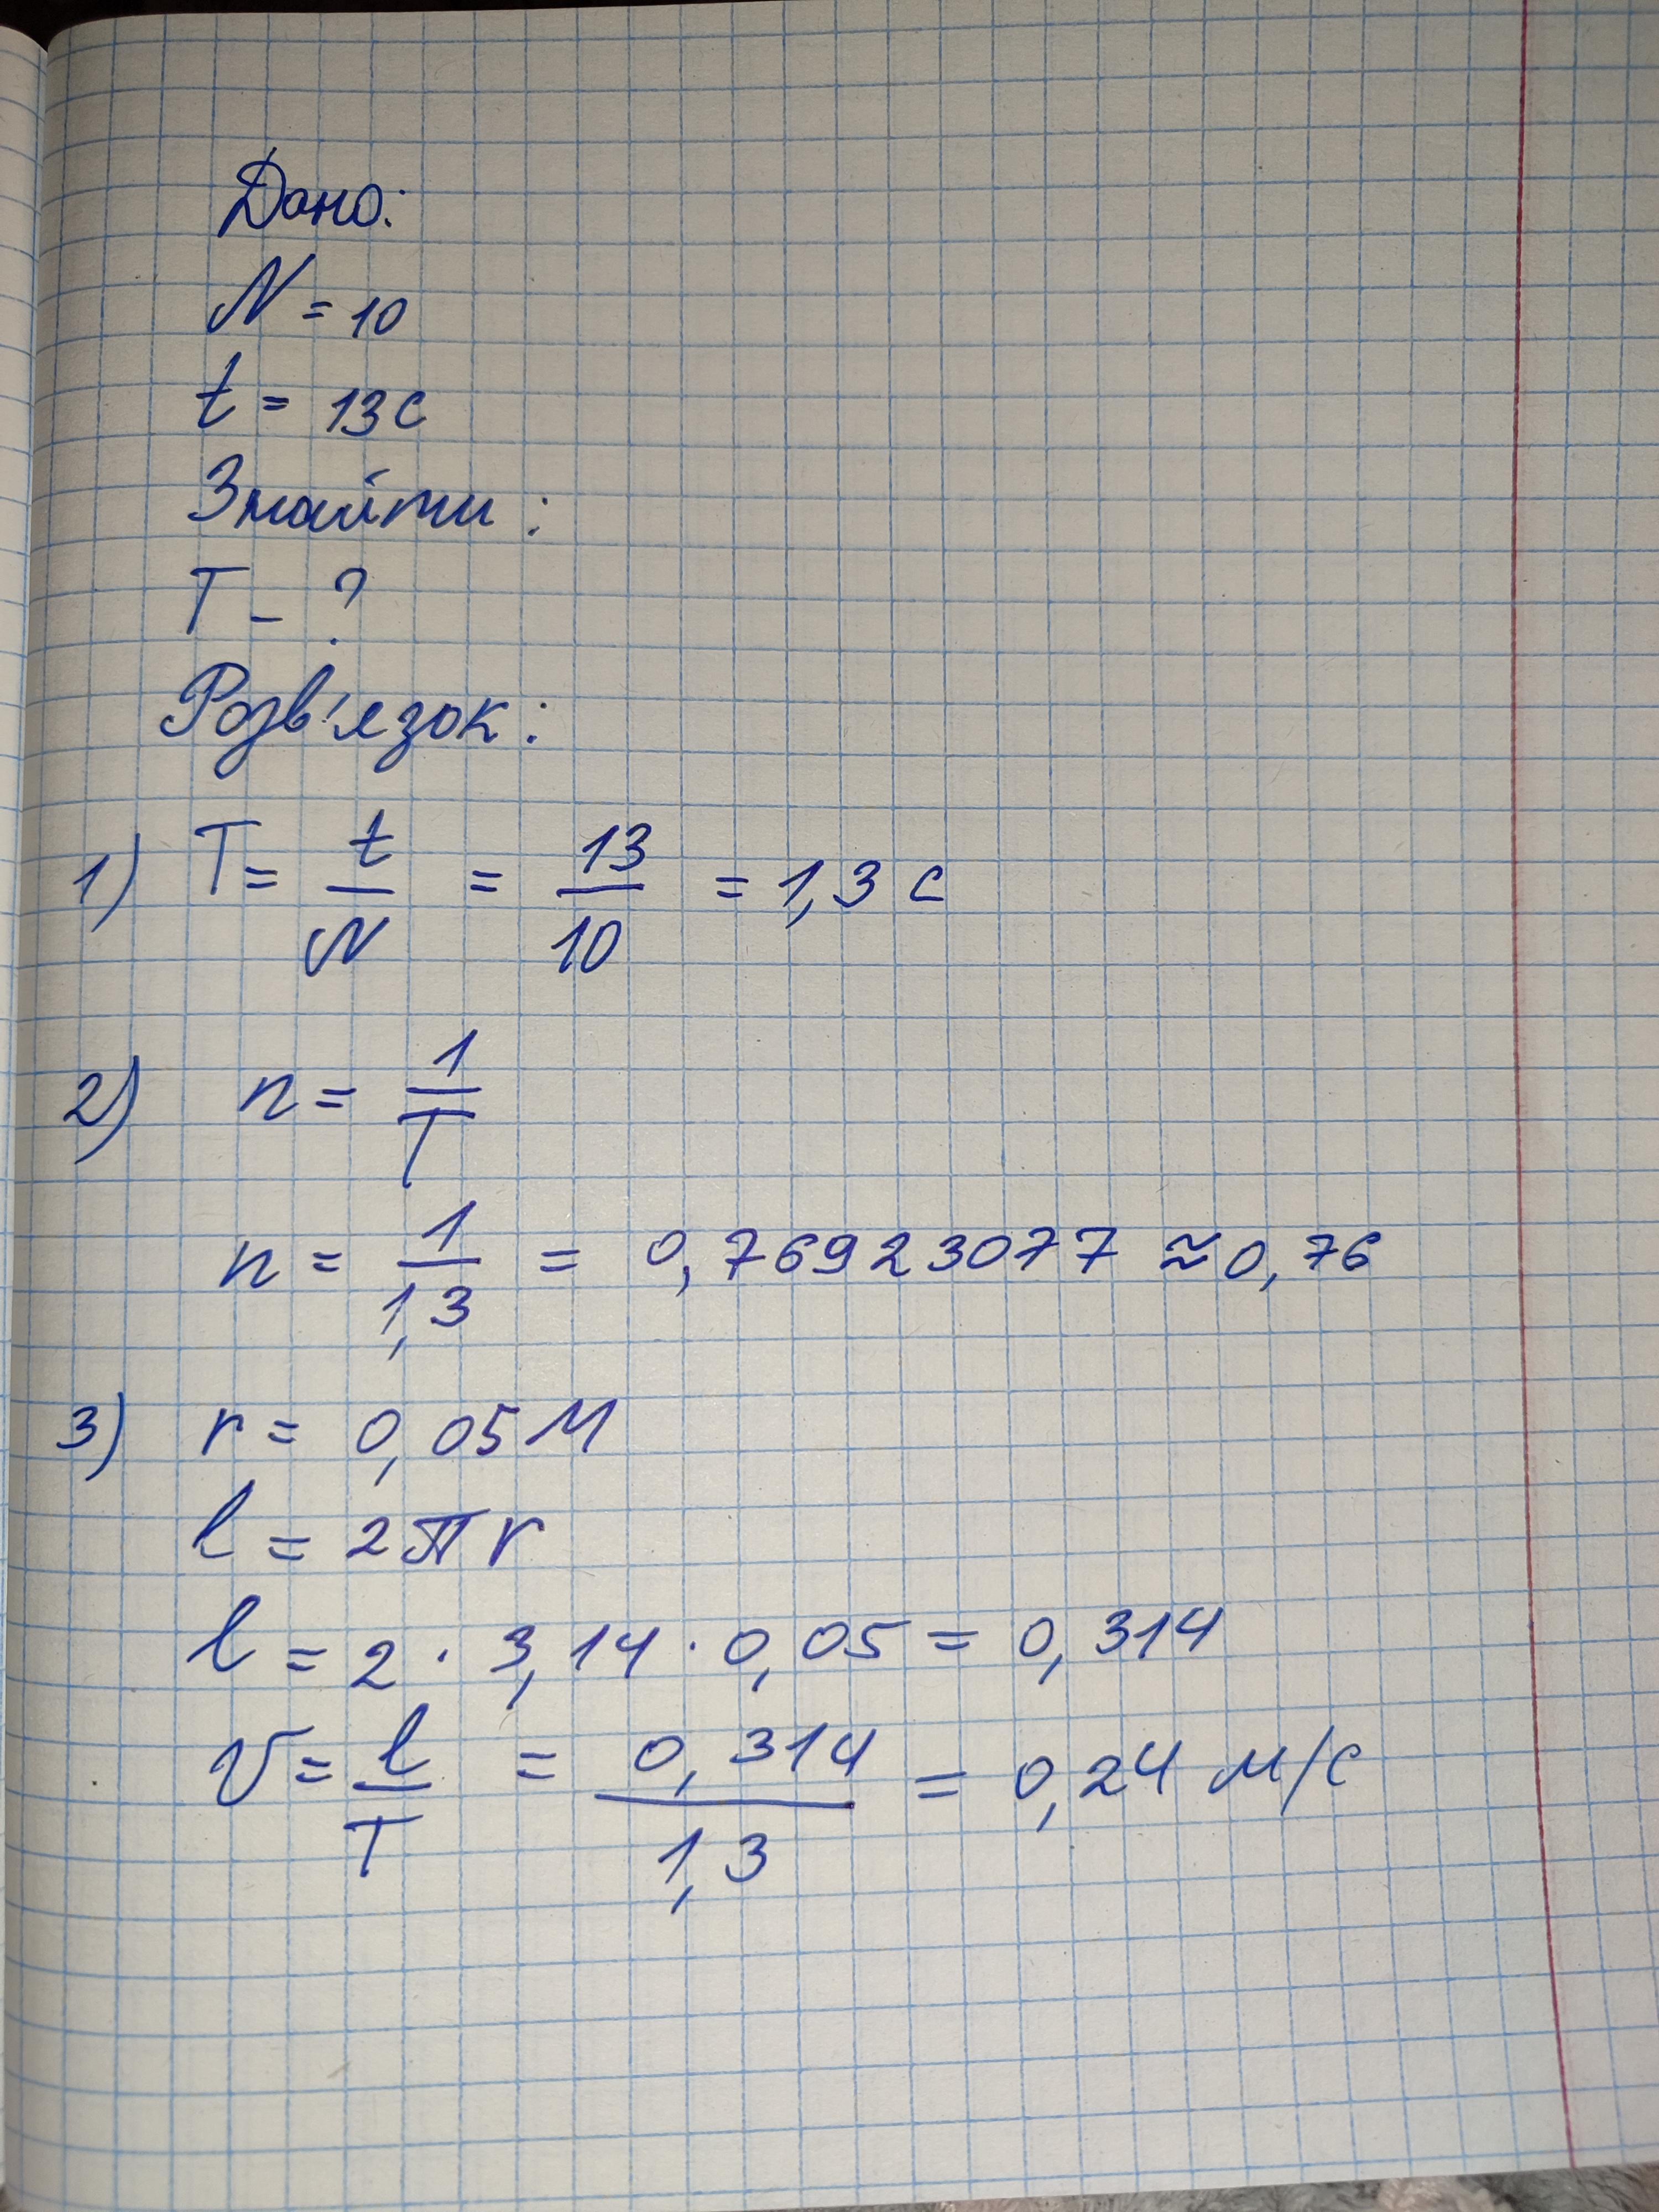 Дано:
N = 10
t = 13 с
Знайти:
T - ?
Розв'язок:
1) T = t/N = 13/10 = 1,3 с
2) n = 1/T
n = 1/1,3 = 0,76923077 ≈ 0,76
3) r = 0,05 м
l = 2πr
l = 2 · 3,14 · 0,05 = 0,314
v = l/T = 0,314/1,3 = 0,24 м/с